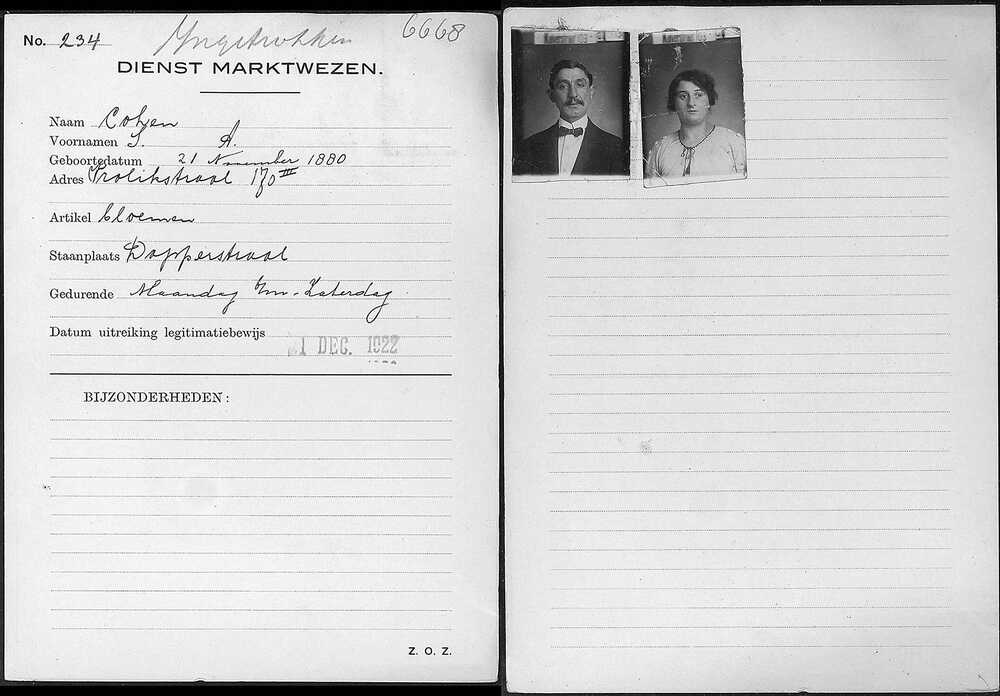 No. 234 Ingetrokken 6668
DIENST MARKTWEZEN.
Naam Cohen
Voornamen S. A.
Geboortedatum 21 November 1880
Adres Prolikstraat 170 III
Artikel bloemen
Staanplaats Dapperstraat
Gedurende Maandag t/m. Zaterdag.
Datum uitreiking legitimatiebewijs
1 DEC. 1922
BIJZONDERHEDEN:
Z. O. Z.